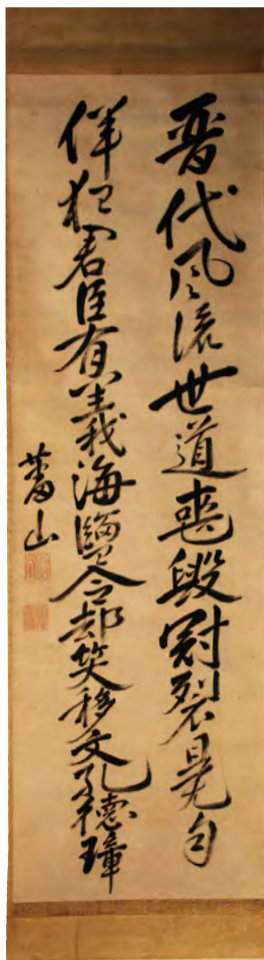 晋代風流世道喪毀冠裂冕自
佯狂君臣有義海鹽令却笑移文孔德璋
蕃山